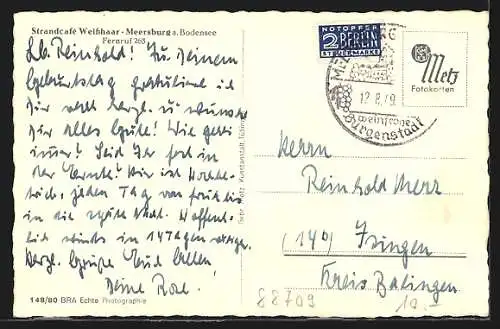 Strandcafé Weißhaar - Meersburg a. Bodensee
Fernruf 263
Lb. Reinhold! Zu Deinem
Geburtstag gratuliere ich
Dir recht herzl. u. wünsche
Dir alles Gute! Wie geht
immer? Seid Ihr fest in
der Ernte? Hier ist Hoch
jeden Tag von früh bis
in die späte Hoffent-
lich in 14 Tagen
Herzl. Grüße Euch Allen
Deine Rosl.
148/80 BRA Echte Photographie
Gebr. Metz, Kunstanstalt, Tübingen
NOTOPFER
2 BERLIN
STEUERMARKE
12.8.49
Weinfrohe
Burgenstadt
Metz
Fotokarten
Herrn
Reinhold Merz
(14b) Isingen
Kreis Balingen
88709
10.-